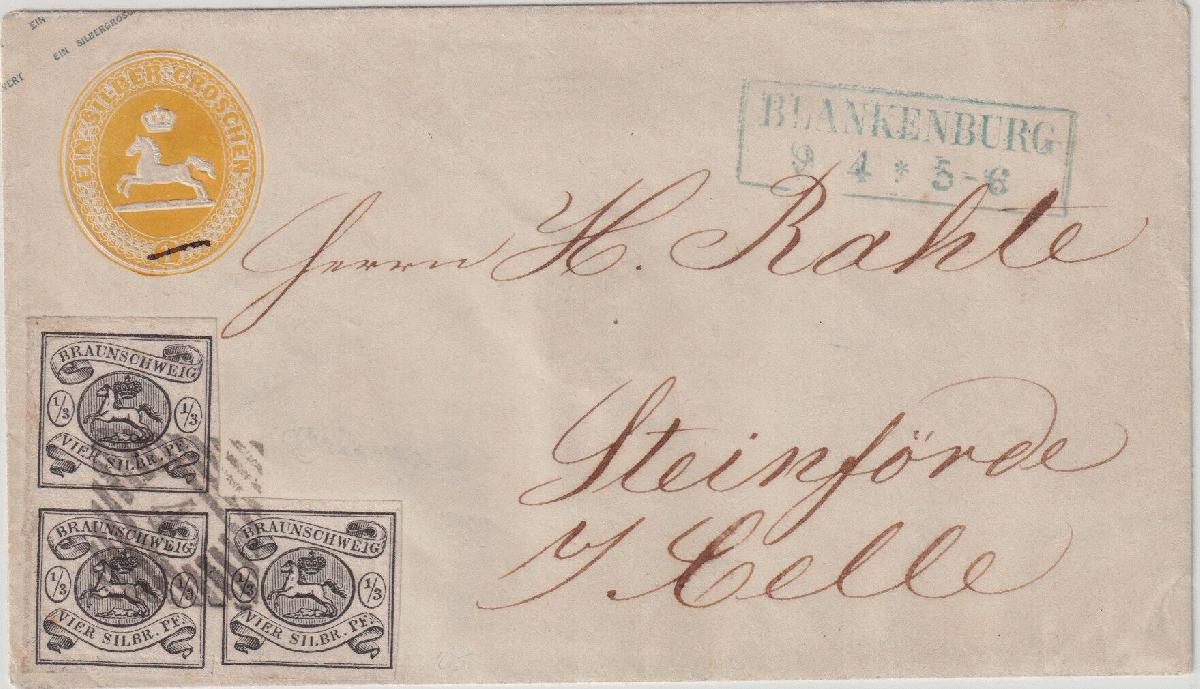 EIN
EIN SILBERGROS
WERT
EIN SILBER GROSCHEN
1
BLANKENBURG
9 4 * 5-6
Herrn H. Rahte
Steinförde
b/ Celle
BRAUNSCHWEIG
1/3 1/3
VIER SILBR. PF.
BRAUNSCHWEIG
1/3 1/3
VIER SILBR. PF.
BRAUNSCHWEIG
1/3 1/3
VIER SILBR. PF.